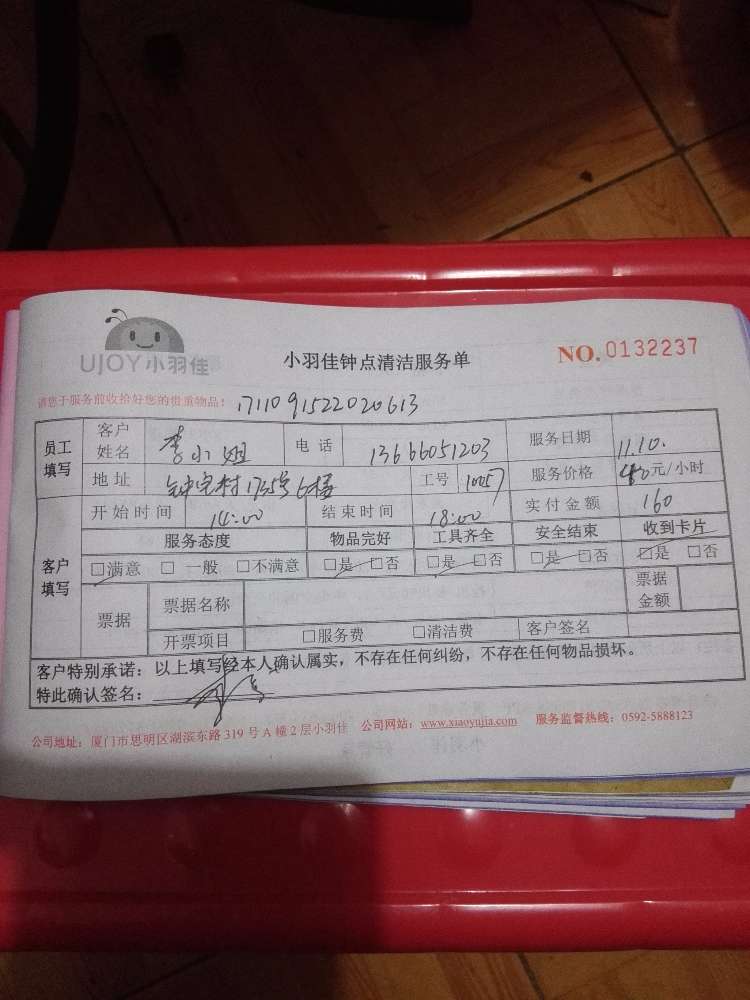 UJOY小羽佳
小羽佳钟点清洁服务单
NO.0132237
请您于服务前收拾好您的贵重物品：
1711091522020613
员工填写 客户姓名 李小姐 电话 13666051203 服务日期 11.10.
地址 钟宅村1735号6楼 工号 10057 服务价格 40元/小时
客户填写 开始时间 14:00 结束时间 18:00 实付金额 160
服务态度 物品完好 工具齐全 安全结束 收到卡片
□满意 □一般 □不满意 □是 □否 □是 □否 □是 □否 □是 □否
票据 票据名称 票据金额
开票项目 □服务费 □清洁费 客户签名
客户特别承诺：以上填写经本人确认属实，不存在任何纠纷，不存在任何物品损坏。
特此确认签名：
公司地址：厦门市思明区湖滨东路319号A幢2层小羽佳 公司网站：www.xiaoyujia.com 服务监督热线：0592-5888123